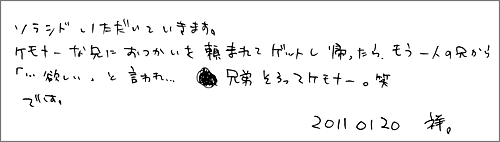 ソランジ いただいていきます。
ケモナーな兄におつかいを頼まれてゲットし帰ったら、もう一人の兄から
「…欲しい。と言われ… 兄弟そろってケモナー。笑
です。
2011 01 20 禅。